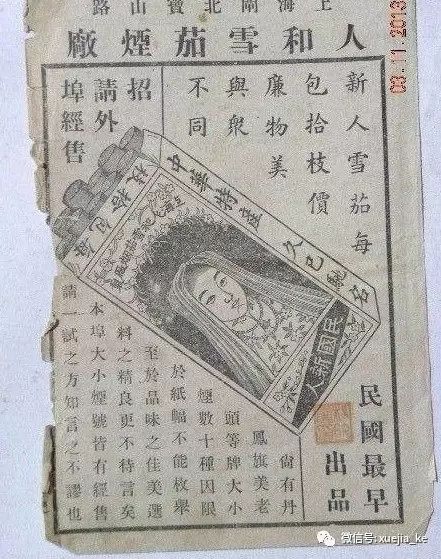 上海閘北寶山路
人和雪茄煙廠
新人雪茄每
包拾枝價
廉物美
與衆
不同
招請外
埠經售
每包拾枝
中華特產 久已馳名
民國新人
民國最早
出品
尚有丹
鳳旗美老
頭等牌大小
煙數十種因限
於紙幅不能枚舉
至於品味之佳美選
料之精良更不待言矣
本埠大小煙號皆有經售
請一試之方知言之不謬也
03.11.2013
微信号: xuejia_ke